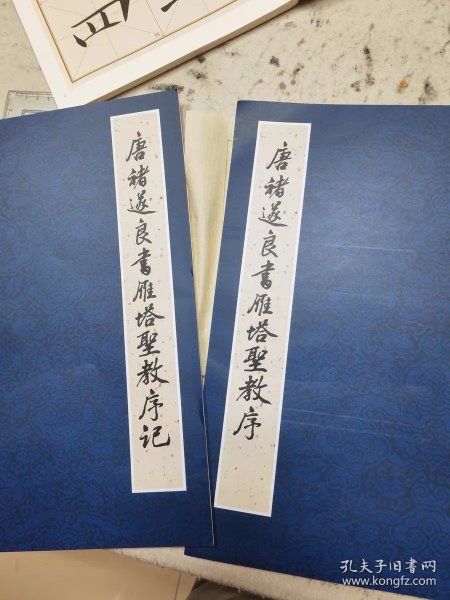 唐褚遂良書雁塔聖教序记
唐褚遂良書雁塔聖教序
孔夫子旧书网
www.kongfz.com